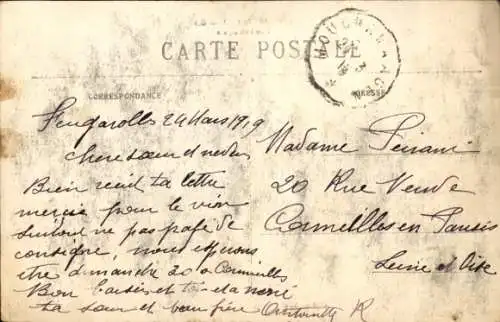 CARTE POSTALE
CORRESPONDANCE
ADRESSE
Feugarolles 24 Mars 1919
chere sœur et neveu
Bien reçu ta lettre
merci pour le vin
surtout ne pas paye de
consigne, nous espérons
être dimanche 30 a Cormeilles
Bon baiser et
ta sœur et beau frère Antoinette R
Madame
20 Rue Vende
Cormeilles en Parisis
Seine et Oise